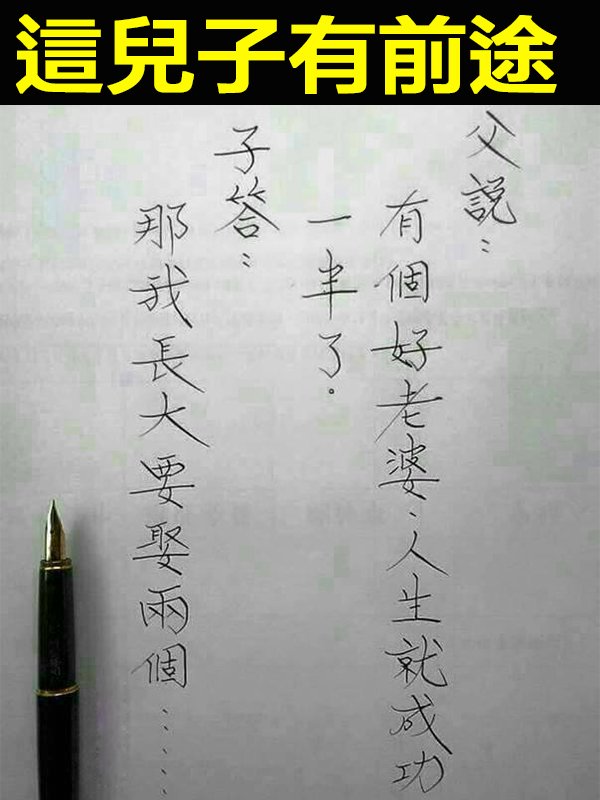 這兒子有前途
父說：
有個好老婆、人生就成功
一半了。
子答：
那我長大要娶兩個……